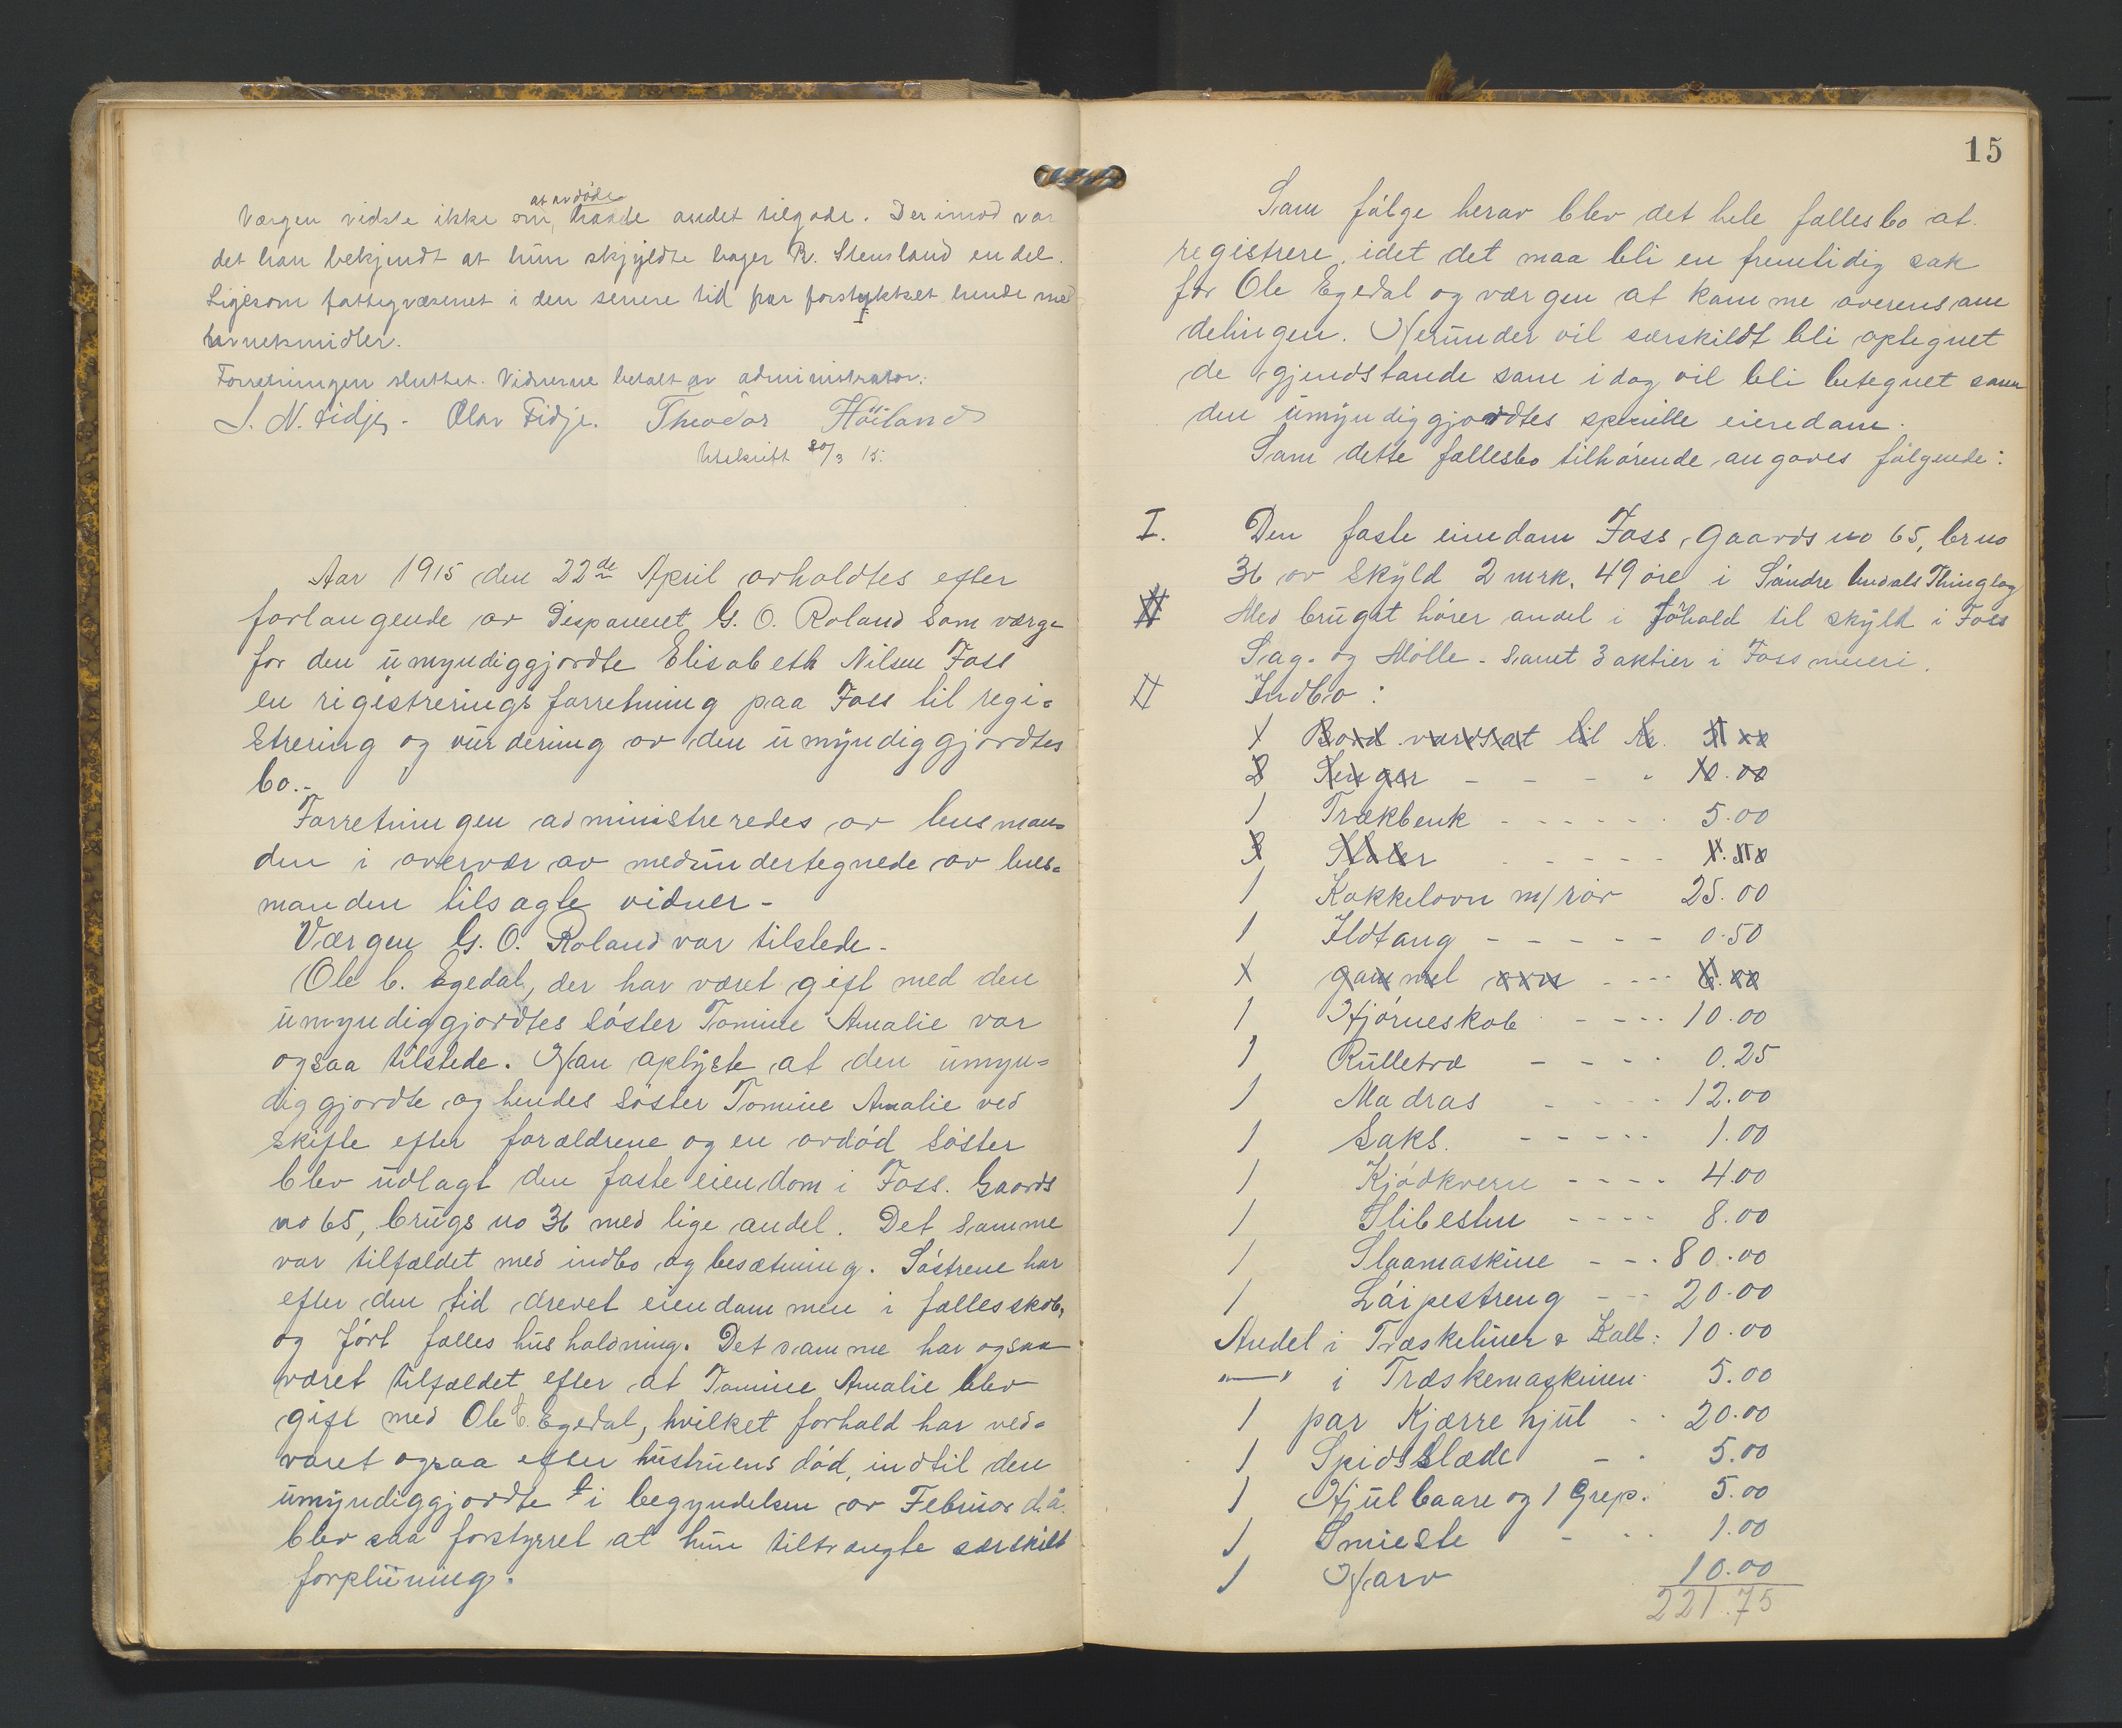 Værgen vidste ikke om at avdöde havde andet tilgode. Derimod var
det han bekjendt at hun skjyldte hager R. Stensland en del.
Ligesom fattigvæsenet i den senere tid har forstrækket hende med
barnekmidler.
Forretningen sluttet. Vidnerne betalt av administrator.
S. N. Fidje. Olav Fidje. Theodor Höiland
Utskrift 30/3 15.
Aar 1915 den 22de April avholdtes efter
forlangende av Dispament G. O. Roland som værge
for den umyndiggjordte Elisabeth Nilsen Foss
en rigistreringsforretning paa Foss til regi-
strering og vurdering av den umyndiggjordtes
bo.-
Forretningen administreredes av lensman-
den i overvær av medundertegnede av lens-
manden tilsagte vidner -
Værgen G. O. Roland var tilstede -
Ole C. Egedal, der har været gift med den
umyndiggjordtes söster Tomine Amalie var
ogsaa tilstede. Han oplyste at den umyn-
diggjordte og hendes söster Tomine Amalie ved
skifte efter forældrene og en avdöd söster
blev udlagt den faste eiendom i Foss. Gaards
no 65, brugs no 36 med lige andel. Det samme
var tilfældet med indbo og besætning. Söstrene har
efter den tid drevet eiendommen i fællesskab,
og fört fælles husholdning. Det samme har ogsaa
været tilfældet efter at Tomine Amalie blev
gift med Ole C. Egedal, hvilket forhold har ved-
varet ogsaa efter hustruens död, indtil den
umyndiggjordte i begyndelsen av Februar d.å.
blev saa forstyrret at hun tiltrængte særskilt
forpleining.
15
Som fölge herav blev det hele fællesbo at
registrere, idet det maa bli en fremtidig sak
for Ole Egedal og værgen at komme overens om
delingen. Herunder vil særskildt bli optegnet
de gjendstande som i dag vil bli betegnet som
den umyndiggjordtes specielle eiendom.
Som dette fællesbo tilhörende angaves fölgende:
I. Den faste eiendom Foss, Gaards no 65, br no
36 av skyld 2 mrk. 49 öre i Söndre Undals Thinglag
Med bruget hörer andel i forhold til skyld i Foss
Sag- og Mölle - samt 3 aktier i Foss meieri.
II Indbo:
1 Bord værdsat til Kr.
2 Senger - - - - 10.00
1 Trækbenk - - - - - - 5.00
3 Stoler - - - - -
1 Kakkelovn m/rör 25.00
1 Ildtang - - - - - 0.50
1 gammel ovn - - -
1 Hjörneskab - - - - 10.00
1 Rulletræ - - - - 0.25
1 Madras - - - - 12.00
1 Saks. - - - - - 1.00
1 Kjödkvern - - - - 4.00
1 Slibesten - - - - 8.00
1 Slaamaskine - - - 80.00
1 Löipestreng - - - 20.00
Andel i Træskeliner & Kalb: 10.00
-"- i Træskemaskinen. 5.00
1 par Kjærrehjul - - 20.00
1 Spidsslæde - - 5.00
1 Hjulbaare og 1 Grep. 5.00
1 Smieste - - - 1.00
1 Harv 10.00
221.75